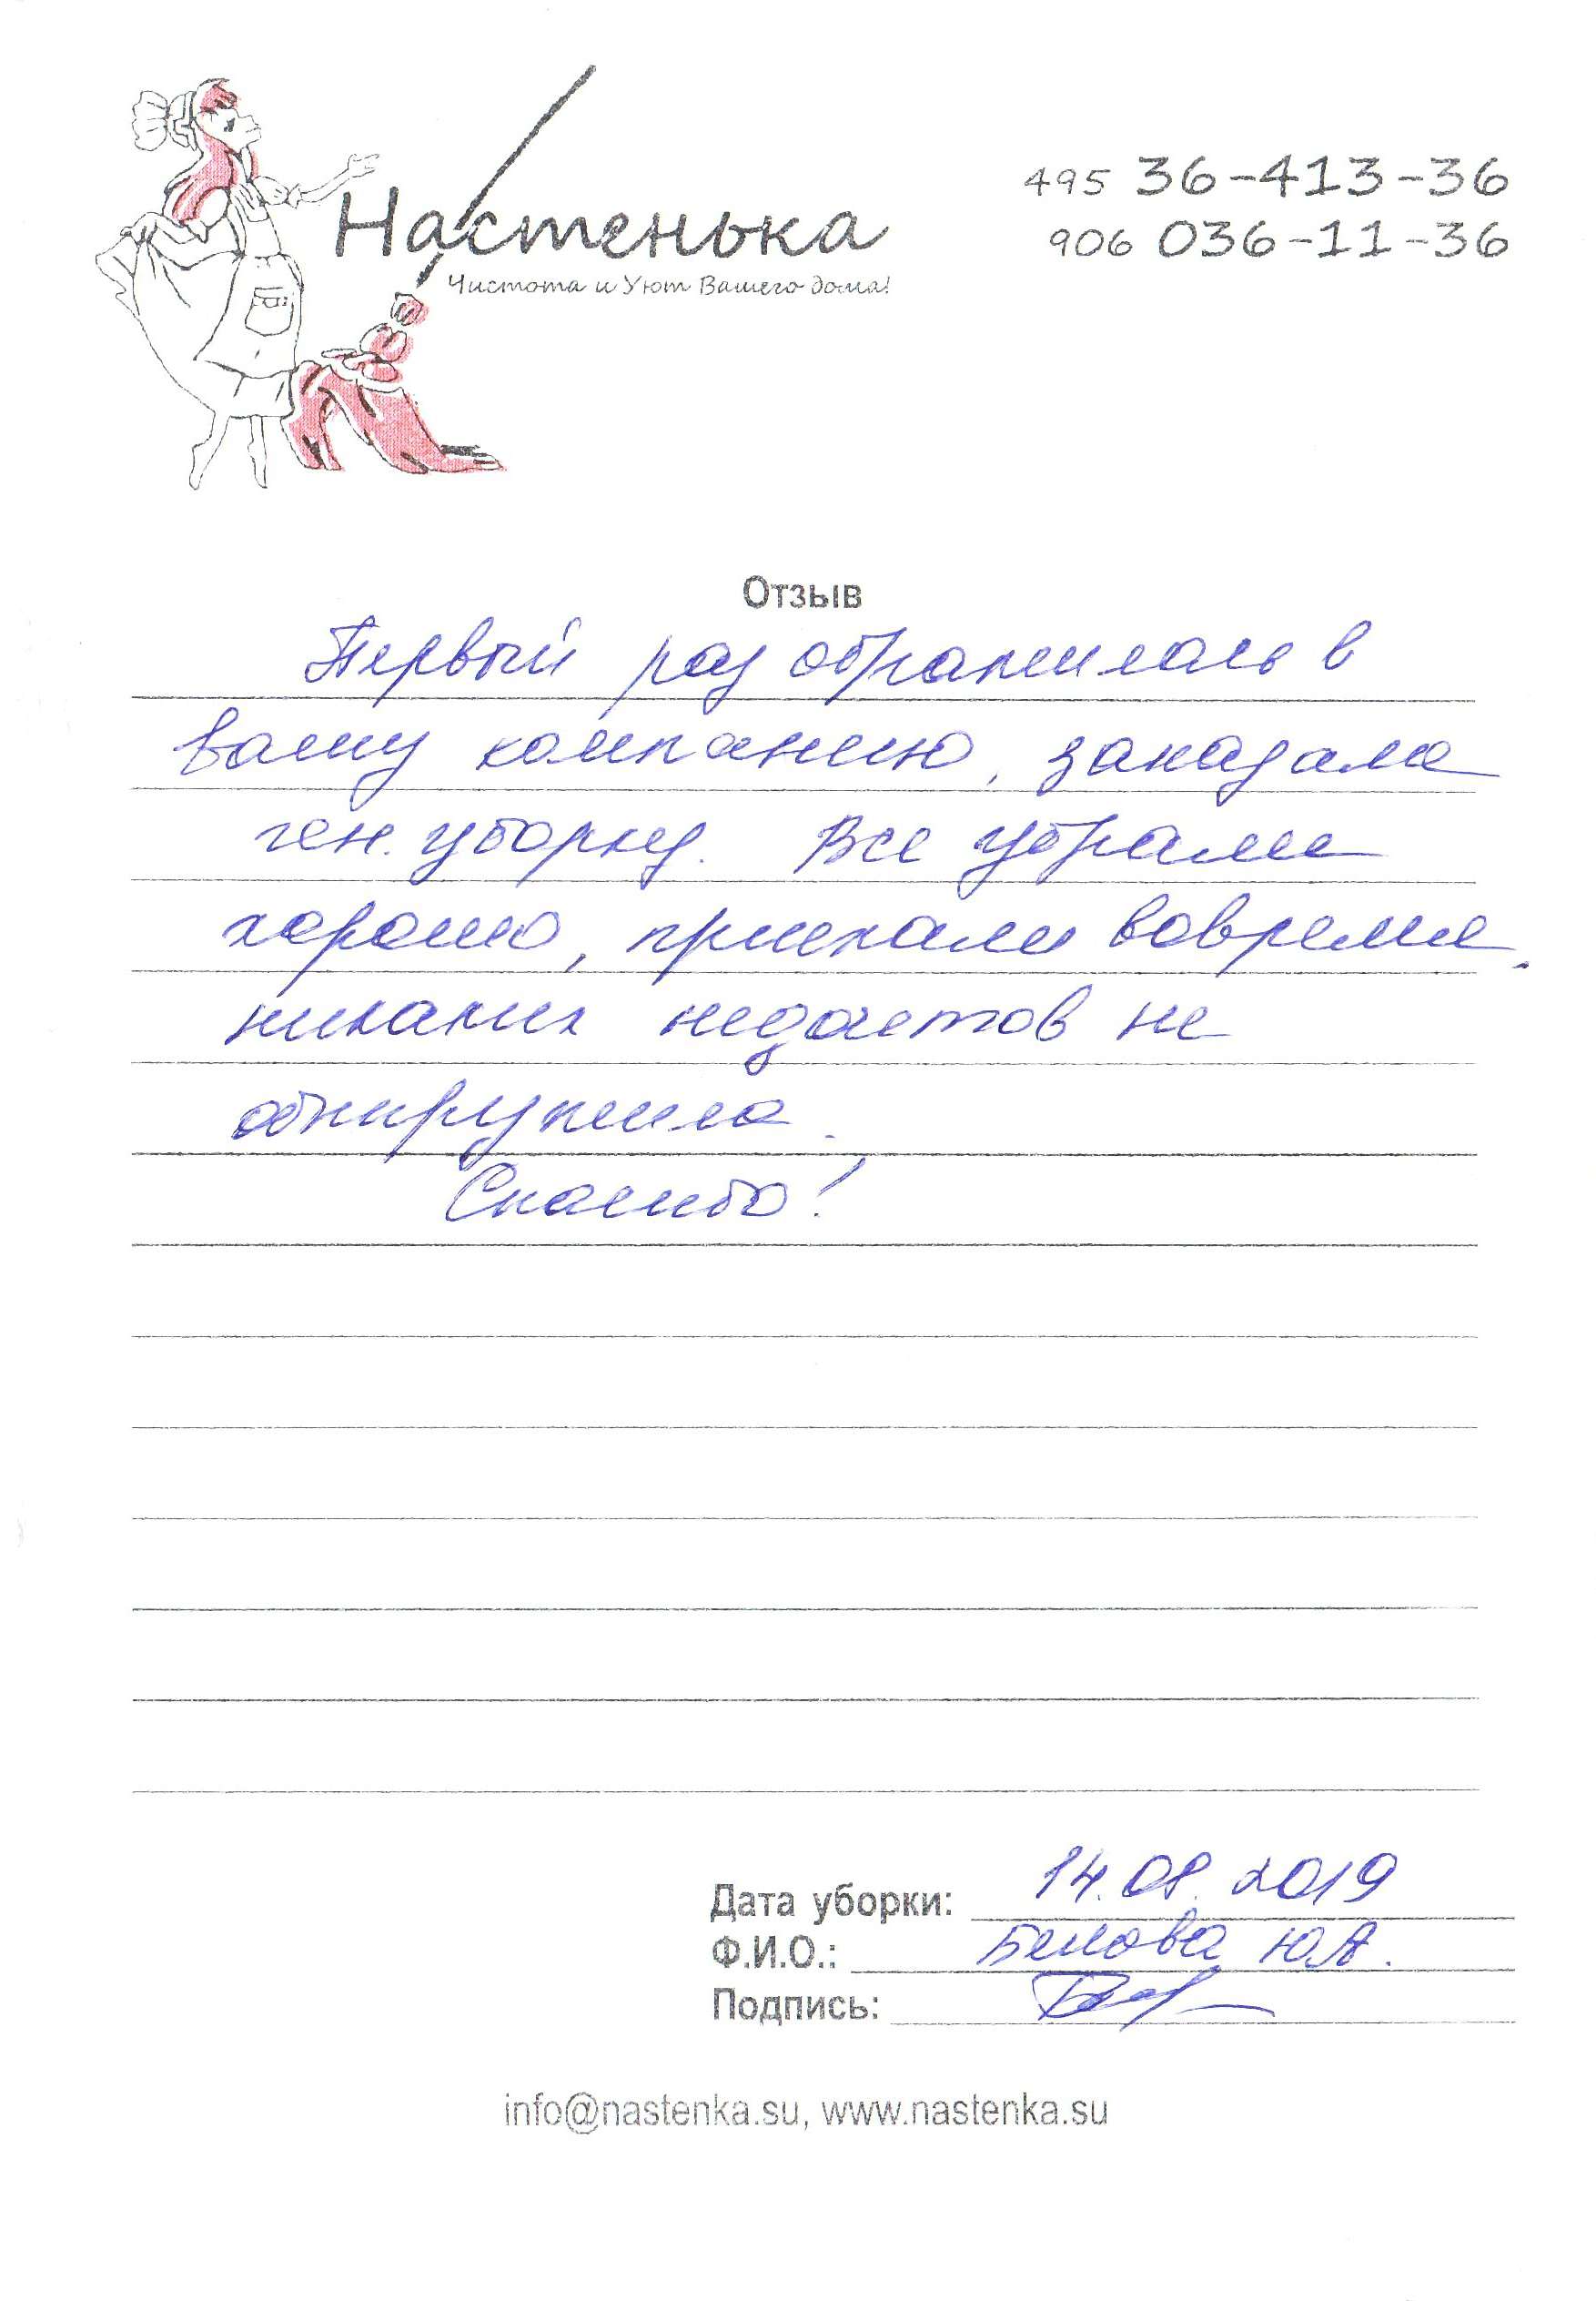 Настенька
Чистота и Уют Вашего дома!
495 36-413-36
906 036-11-36
Отзыв
Первый раз обратилась в
вашу компанию, заказала
ген. уборку. Все убрали
хорошо, приехали вовремя.
никаких недостатков не
обнаружила.
Спасибо!
Дата уборки: 14.08.2019
Ф.И.О.: Белова Ю.А.
Подпись:
info@nastenka.su, www.nastenka.su